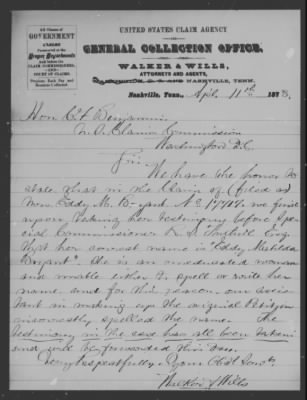 All Classes of
GOVERNMENT
CLAIMS
Prosecuted in the
Proper Departments
and before the
CLAIM COMMISSIONERS,
AND
COURT OF CLAIMS.
Pensions, Back Pay and
Bounties Collected
UNITED STATES CLAIM AGENCY
AND
GENERAL COLLECTION OFFICE.
WALKER & WILLS,
ATTORNEYS AND AGENTS,
AND NASHVILLE, TENN.
Nashville, Tenn., April 11th 1878.
Hon. Benjamin
Claims Commission
Washington D.C.
Sir:
We have the honor to
state that in the Claim of (filed as)
Mrs. Eddy M. Bryant No 17717. we find
upon taking her testimony before Special
Commissioner R. S. Esq
that her correct name is "Eddy Matilda
Bryant". She is an uneducated woman
and unable either to spell or write her
name and for this reason our assis-
tant in making up the original Petition
incorrectly spelled the name. The
testimony in the case has all been taken
and will be forwarded this day.
Very respectfully Your Obt Servts
Walker & Wills